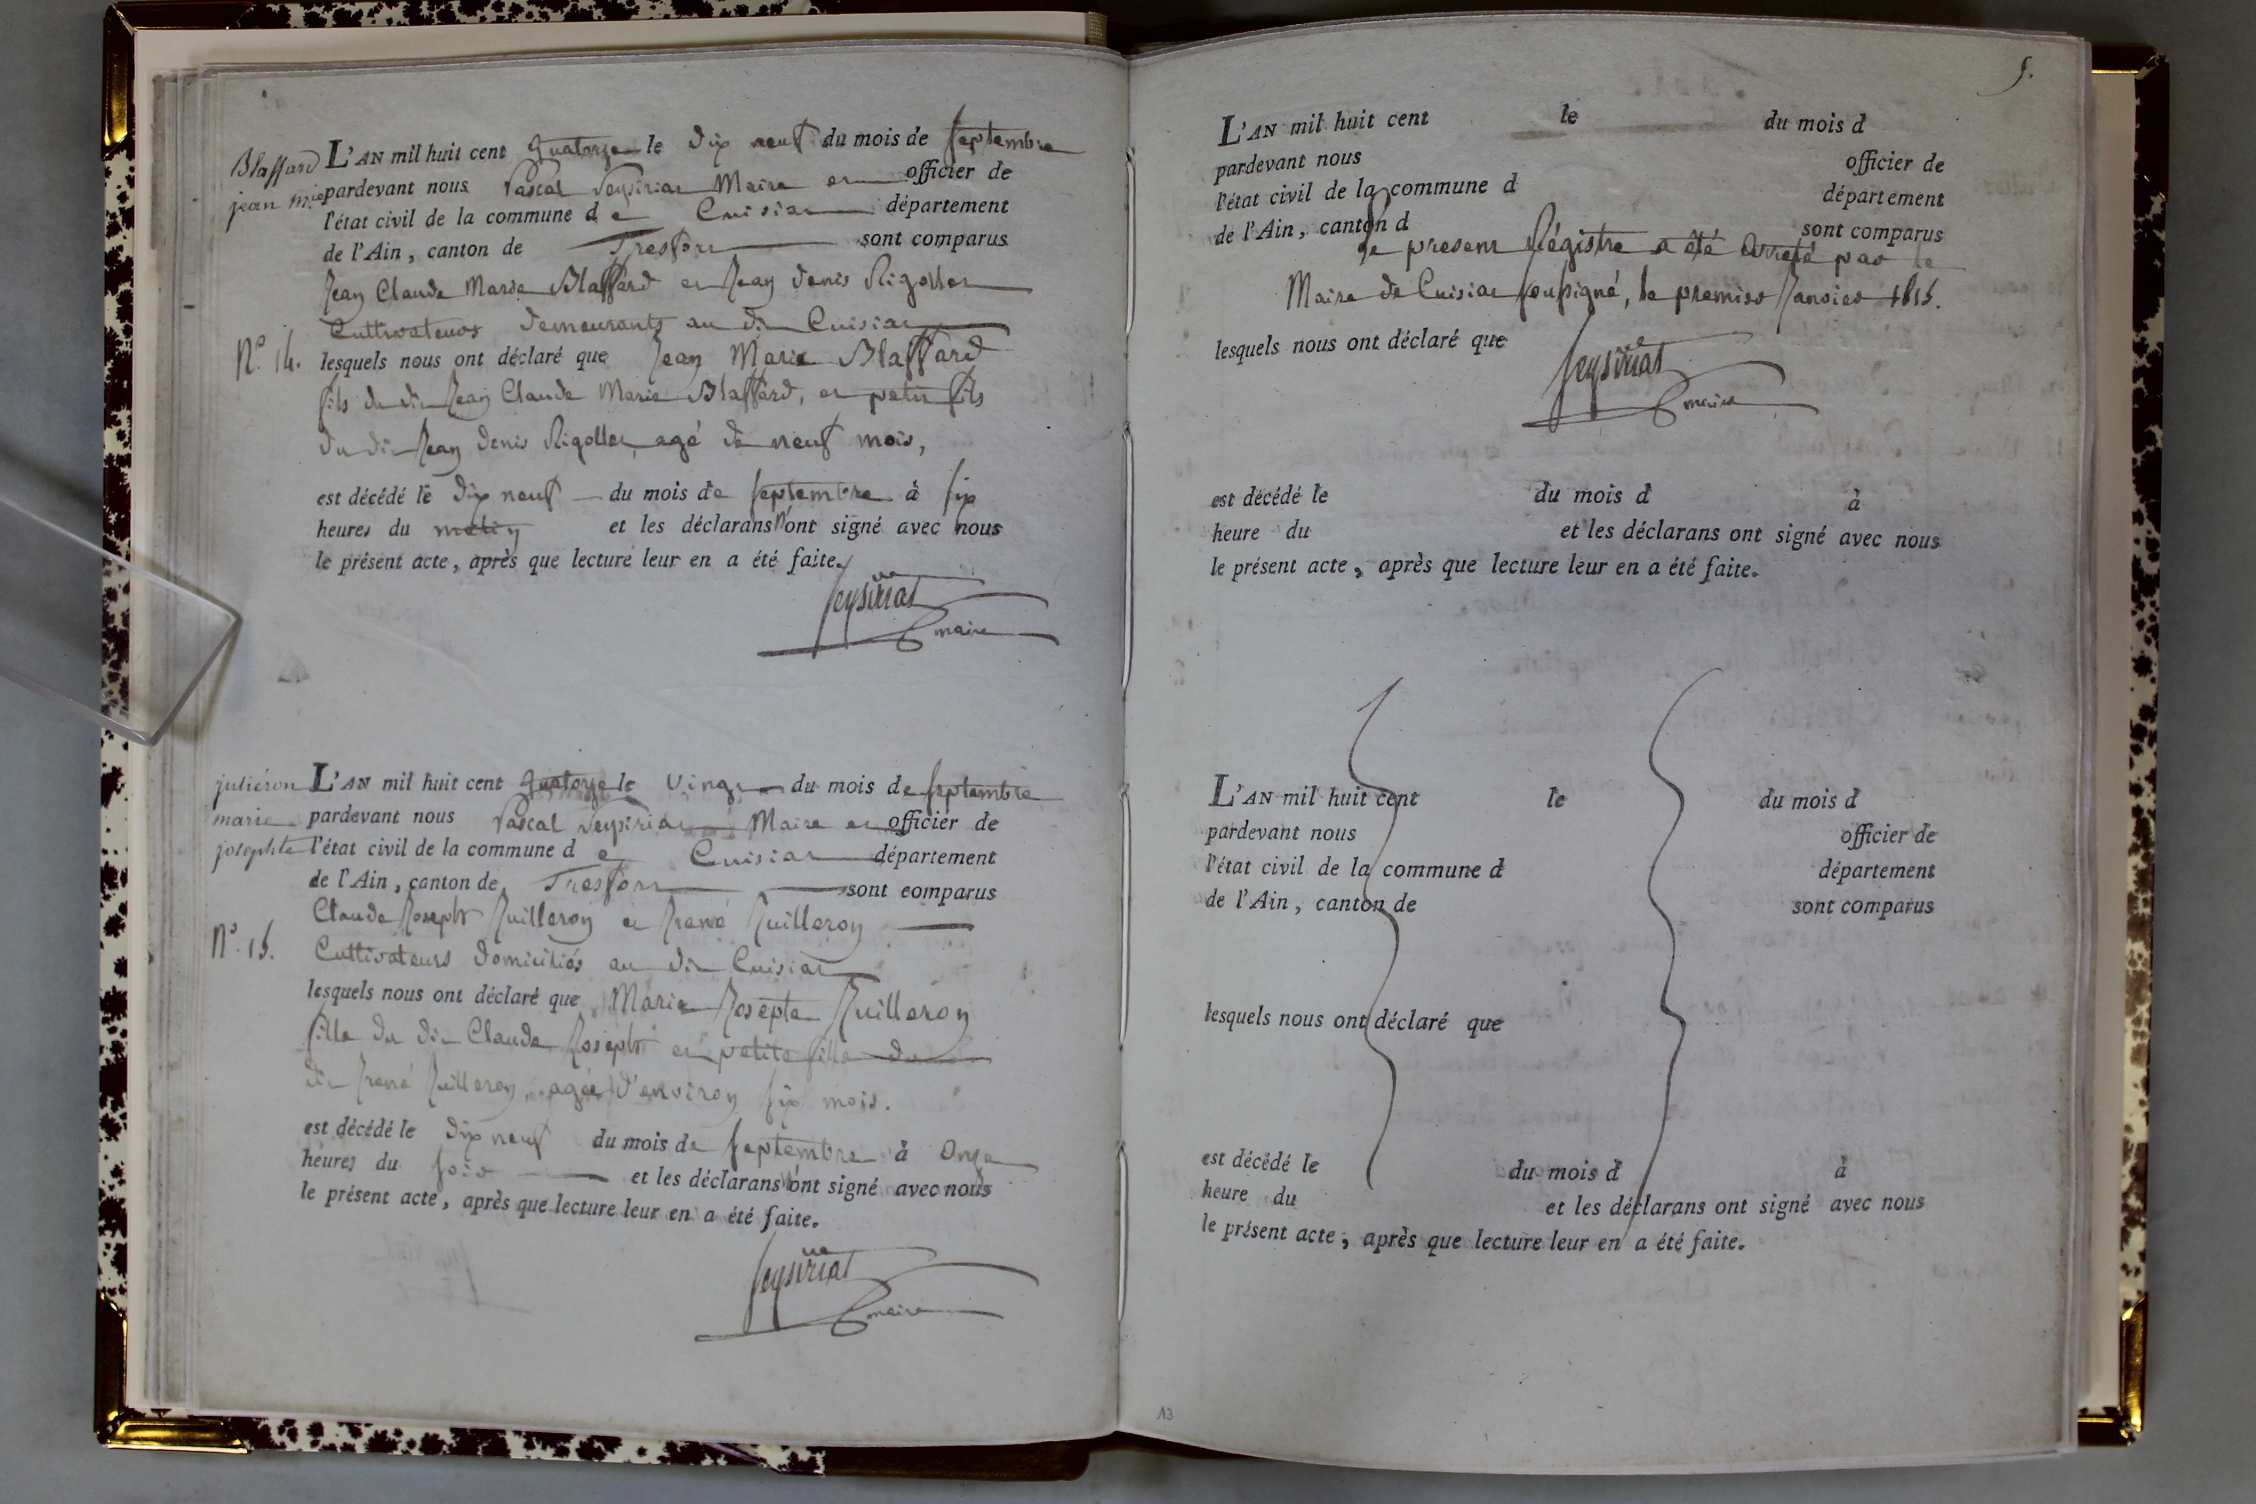 Blaffard
jean mie
L'AN mil huit cent quatorze le dix neuf du mois de septembre
pardevant nous Pascal Seysiriat Maire et officier de
l'état civil de la commune de Cuisiat département
de l'Ain, canton de Treffort sont comparus
Jean Claude Marie Blaffard et Jean denis Rigollet
Cultivateurs demeurants au dit Cuisiat
N.o 14.
lesquels nous ont déclaré que Jean Marie Blaffard
fils du dit Jean Claude Marie Blaffard, et petit fils
du dit Jean denis Rigollet, agé de neuf mois,
est décédé le dix neuf du mois de septembre à six
heures du matin et les déclarans n'ont signé avec nous
le présent acte, après que lecture leur en a été faite.
Seysiriat
maire
juliéron
marie
josephte
L'AN mil huit cent quatorze le vingt du mois de septembre
pardevant nous Pascal Seysiriat Maire et officier de
l'état civil de la commune de Cuisiat département
de l'Ain, canton de Treffort sont comparus
Claude Joseph Juilleron et René Juilleron
N.o 15.
Cultivateurs domiciliés au dit Cuisiat
lesquels nous ont déclaré que Marie Josepte Juilleron
fille du dit Claude Joseph et petite fille du
dit René Juilleron, agée d'environ six mois.
est décédé le dix neuf du mois de septembre à onze
heures du soir et les déclarans n'ont signé avec nous
le présent acte, après que lecture leur en a été faite.
Seysiriat
maire
5.
L'AN mil huit cent le du mois d
pardevant nous officier de
l'état civil de la commune d département
de l'Ain, canton d sont comparus
Le present Régistre a été arreté par le
Maire de Cuisiat soussigné, le premier Janvier 1815.
lesquels nous ont déclaré que
Seysiriat
maire
est décédé le du mois d à
heure du et les déclarans ont signé avec nous
le présent acte, après que lecture leur en a été faite.
L'AN mil huit cent le du mois d
pardevant nous officier de
l'état civil de la commune d département
de l'Ain, canton de sont comparus
lesquels nous ont déclaré que
est décédé le du mois d à
heure du et les déclarans ont signé avec nous
le présent acte, après que lecture leur en a été faite.
13